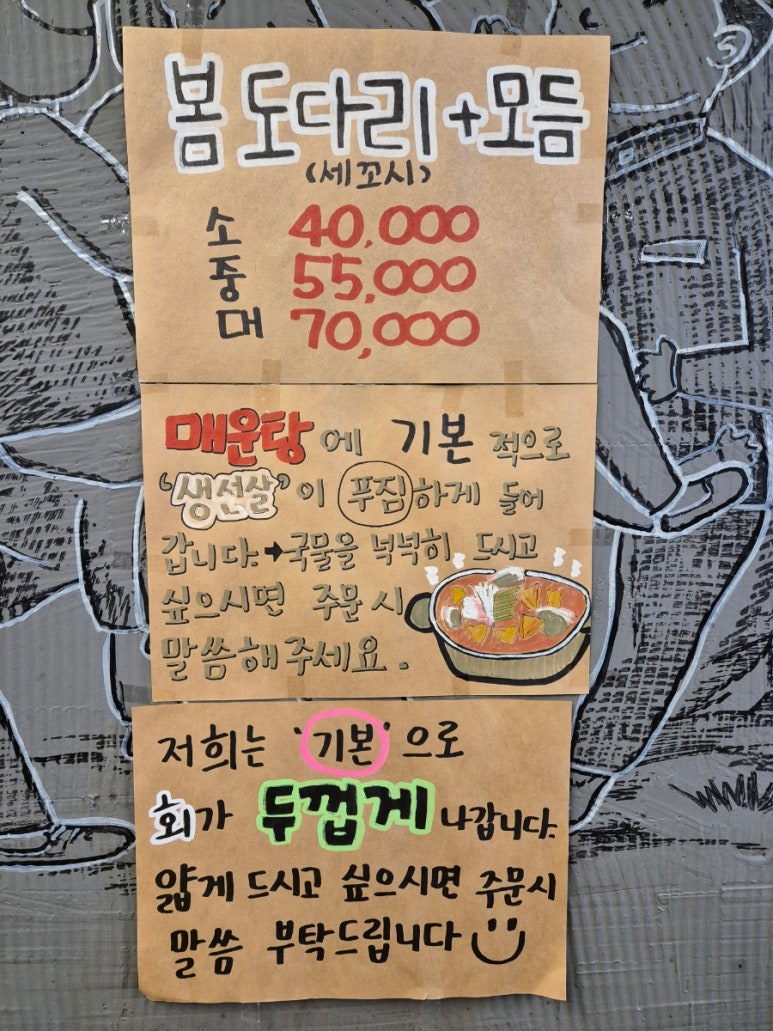 봄 도다리+모듬
(세꼬시)
소 40,000
중 55,000
대 70,000
매운탕에 기본적으로
'생선살"이 푸짐하게 들어
갑니다.➡국물을 넉넉히 드시고
싶으시면 주문시
말씀해주세요.
저희는 '기본'으로
회가 두껍게 나갑니다.
얇게 드시고 싶으시면 주문시
말씀 부탁드립니다